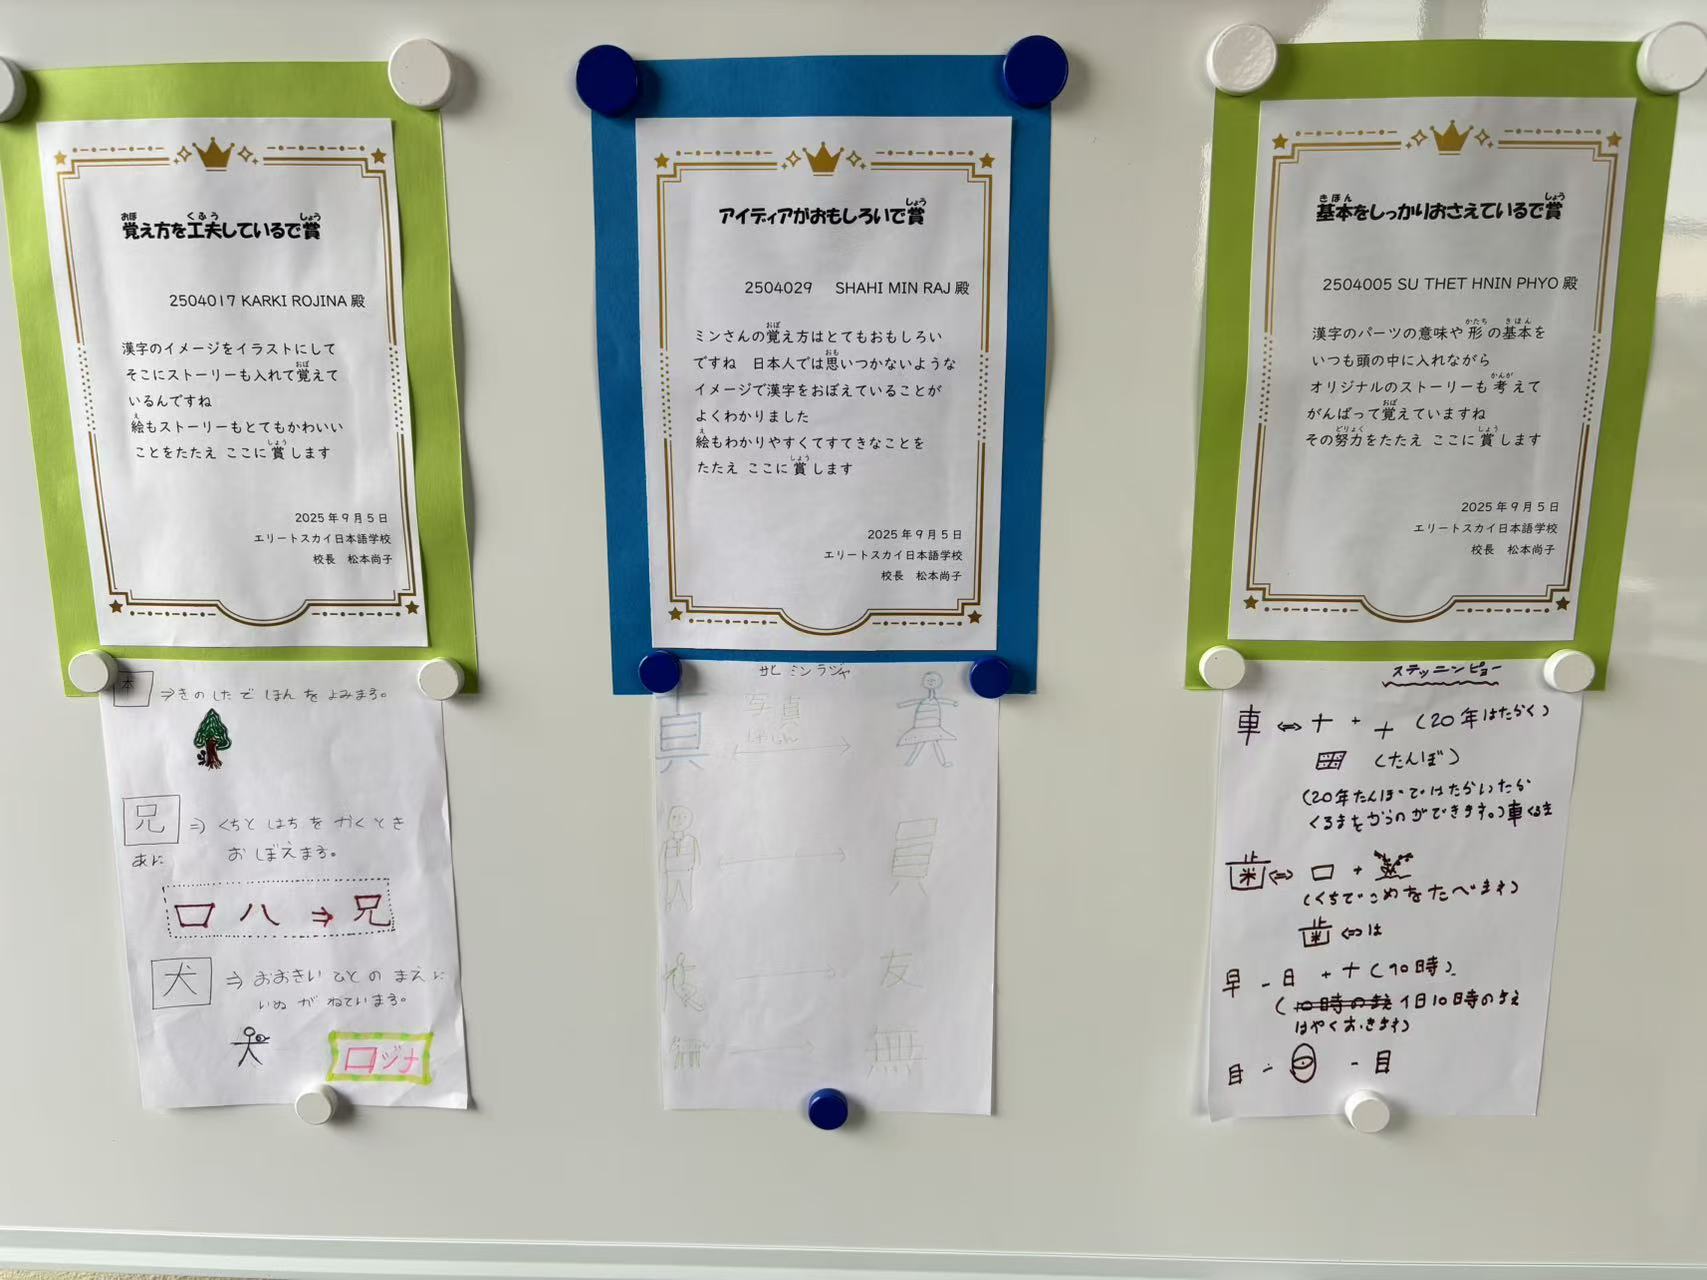 覚え方を工夫しているで賞
2504017 KARKI ROJINA 殿
漢字のイメージをイラストにして
そこにストーリーも入れて覚えて
いるんですね
絵もストーリーもとてもかわいい
ことをたたえ ここに賞します
2025年9月5日
エリートスカイ日本語学校
校長 松本尚子
本 ⇒きのしたで ほんを よみます。
兄 ⇒ くちと はちを かくとき
あに おぼえます。
口 ハ ⇒ 兄
犬 ⇒ おおきい ひとの まえに
いぬが ねています。
ロジナ
アイディアがおもしろいで賞
2504029 SHAHI MIN RAJ 殿
ミンさんの覚え方はとてもおもしろい
ですね 日本人では思いつかないような
イメージで漢字をおぼえていることが
よくわかりました
絵もわかりやすくてすてきなことを
たたえ ここに賞します
2025年9月5日
エリートスカイ日本語学校
校長 松本尚子
サヒ ミンラジャ
真 写真
しゃしん
員
友
無
基本をしっかりおさえているで賞
2504005 SU THET HNIN PHYO 殿
漢字のパーツの意味や形の基本を
いつも頭の中に入れながら
オリジナルのストーリーも考えて
がんばって覚えていますね
その努力をたたえ ここに賞します
2025年9月5日
エリートスカイ日本語学校
校長 松本尚子
ステッニンピョー
車 ⇔ 十 + 十 (20年はたらく)
田 (たんぼ)
(20年たんぼではたらいたから
くるまをかうのができます。) 車くるま
歯 ⇔ 口 +
(くちでこめをたべます)
歯 ⇔ は
早 - 日 + 十 (10時)
1日10時のまえ
はやくおきます)
目 - 目